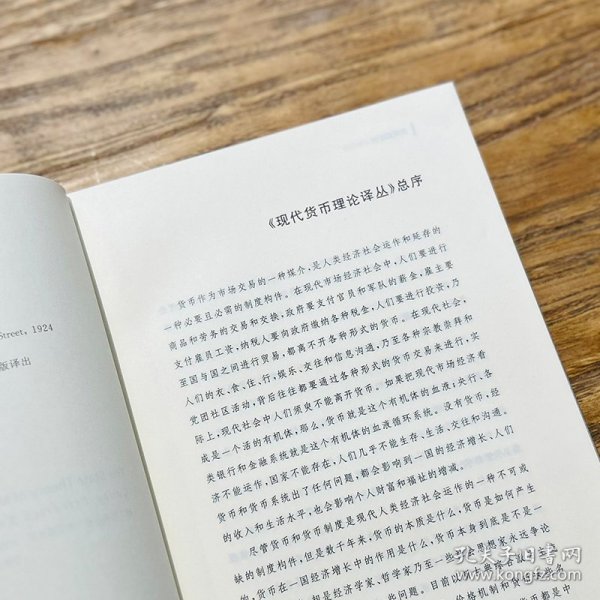 Street, 1924
版译出
《现代货币理论译丛》总序
货币作为市场交易的一种媒介，是人类经济社会运作和延存的
一种必要且必需的制度构件。在现代市场经济社会中，人们要进行
商品和劳务的交易和交换，政府要支付官员和军队的薪金，雇主要
支付雇员工资，纳税人要向政府缴纳各种税金，人们要进行投资，乃
至国与国之间进行贸易，都离不开各种形式的货币。在现代社会，
人们的衣、食、住、行，娱乐、交往和信息沟通，乃至各种宗教崇拜和
党团社区活动，背后往往都要通过各种形式的货币交易来进行，实
际上，现代社会中人们须臾不能离开货币。如果把现代市场经济看
成是一个活的有机体，那么，货币就是这个有机体的血液；央行、各
类银行和金融系统就是这个有机体的血液循环系统。没有货币，经
济不能运作，国家不能存在，人们几乎不能生存、生活、交往和沟通。
货币和货币系统出了任何问题，都会影响到一国的经济增长、人们
的收入和生活水平，也会影响个人财富和福祉的增减。
尽管货币和货币制度是现代人类经济社会运作的一种不可或
缺的制度构件，但是数千年来，货币的本质是什么，货币是如何产生
的，货币在一国经济增长中的作用是什么，货币本身到底是不是一
经济学家、哲学家乃至一些 思想家永远争论
些问题。目前以
价格机制和货
币都是中
孔夫子旧书网
www.kongfz.com